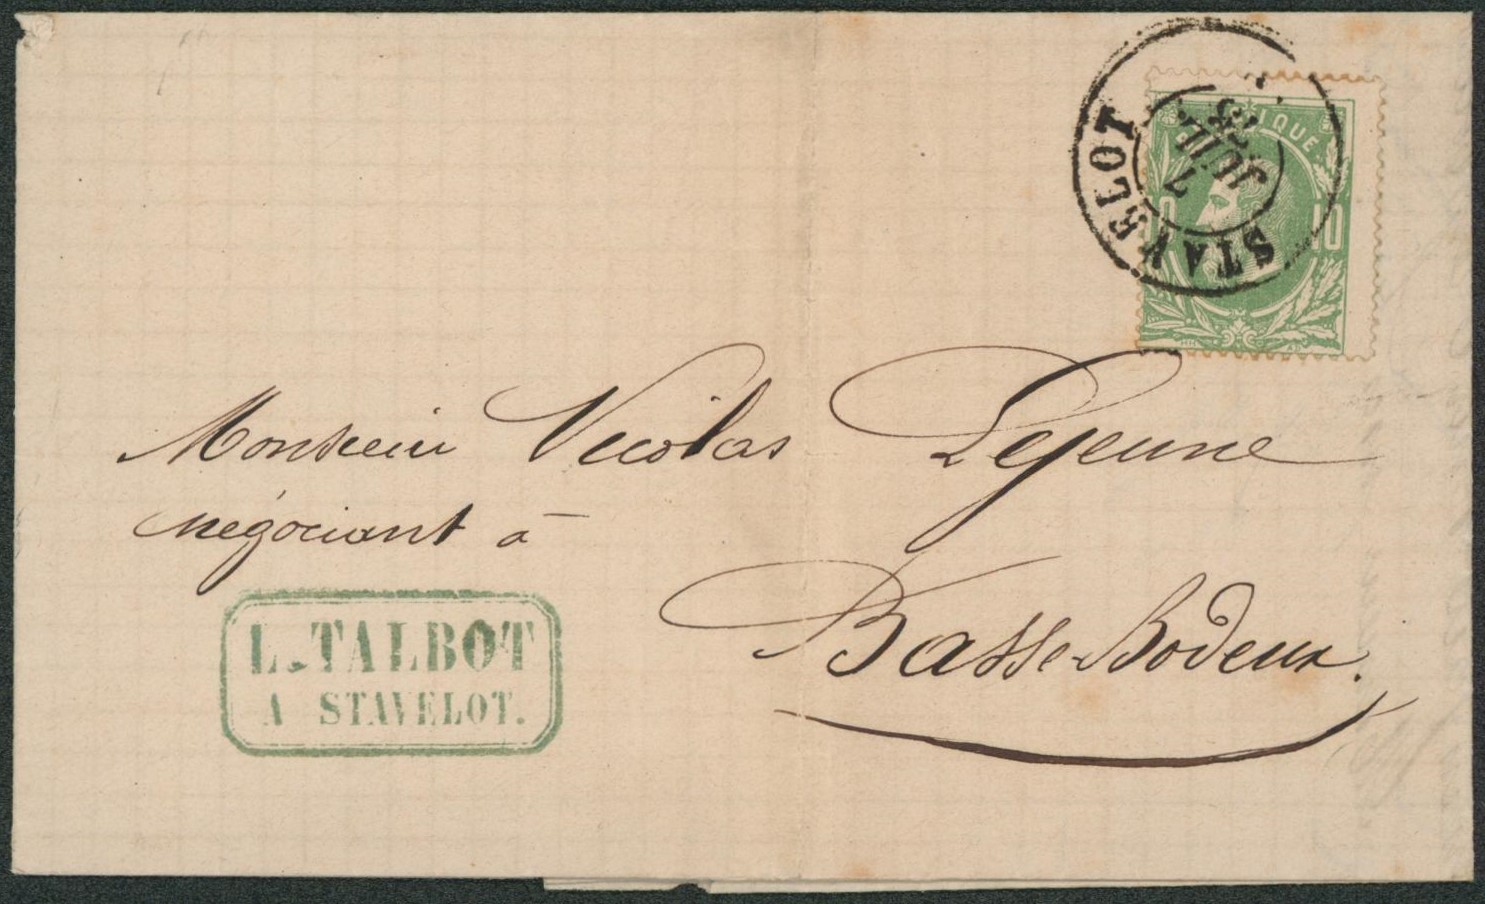 STAVELOT
7
JUIL
IQUE
10
Monsieur Nicolas Lejeune
négociant à
Basse-Bodeux.
L. TALBOT
A STAVELOT.